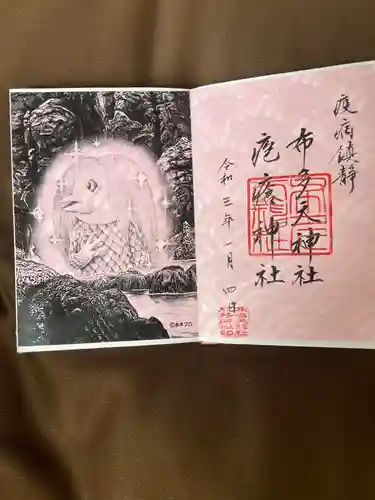 疫病鎮静
布多天神社
疱瘡神社
令和三年一月四日
©水木プロ